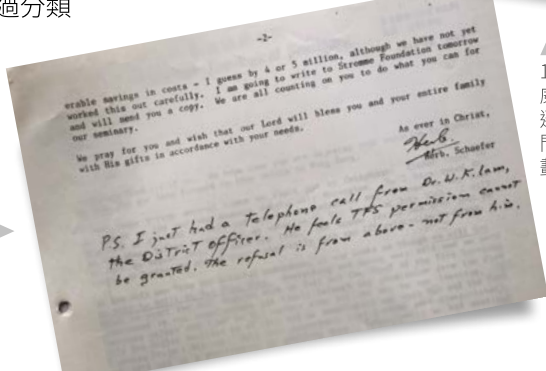 過分類
-2-
erable savings in costs - I guess by 4 or 5 million, although we have not yet
worked this out carefully. I am going to write to Stromme Foundation tomorrow
and will send you a copy. We are all counting on you to do what you can for
our seminary.
We pray for you and wish that our Lord will bless you and your entire family
with His gifts in accordance with your needs.
As ever in Christ,
Herb
Herb. Schaefer
P.S. I just had a telephone call from Dr. W.K. Lam,
the District officer. He feels TFS permission cannot
be granted. The refusal is from above - not from him.